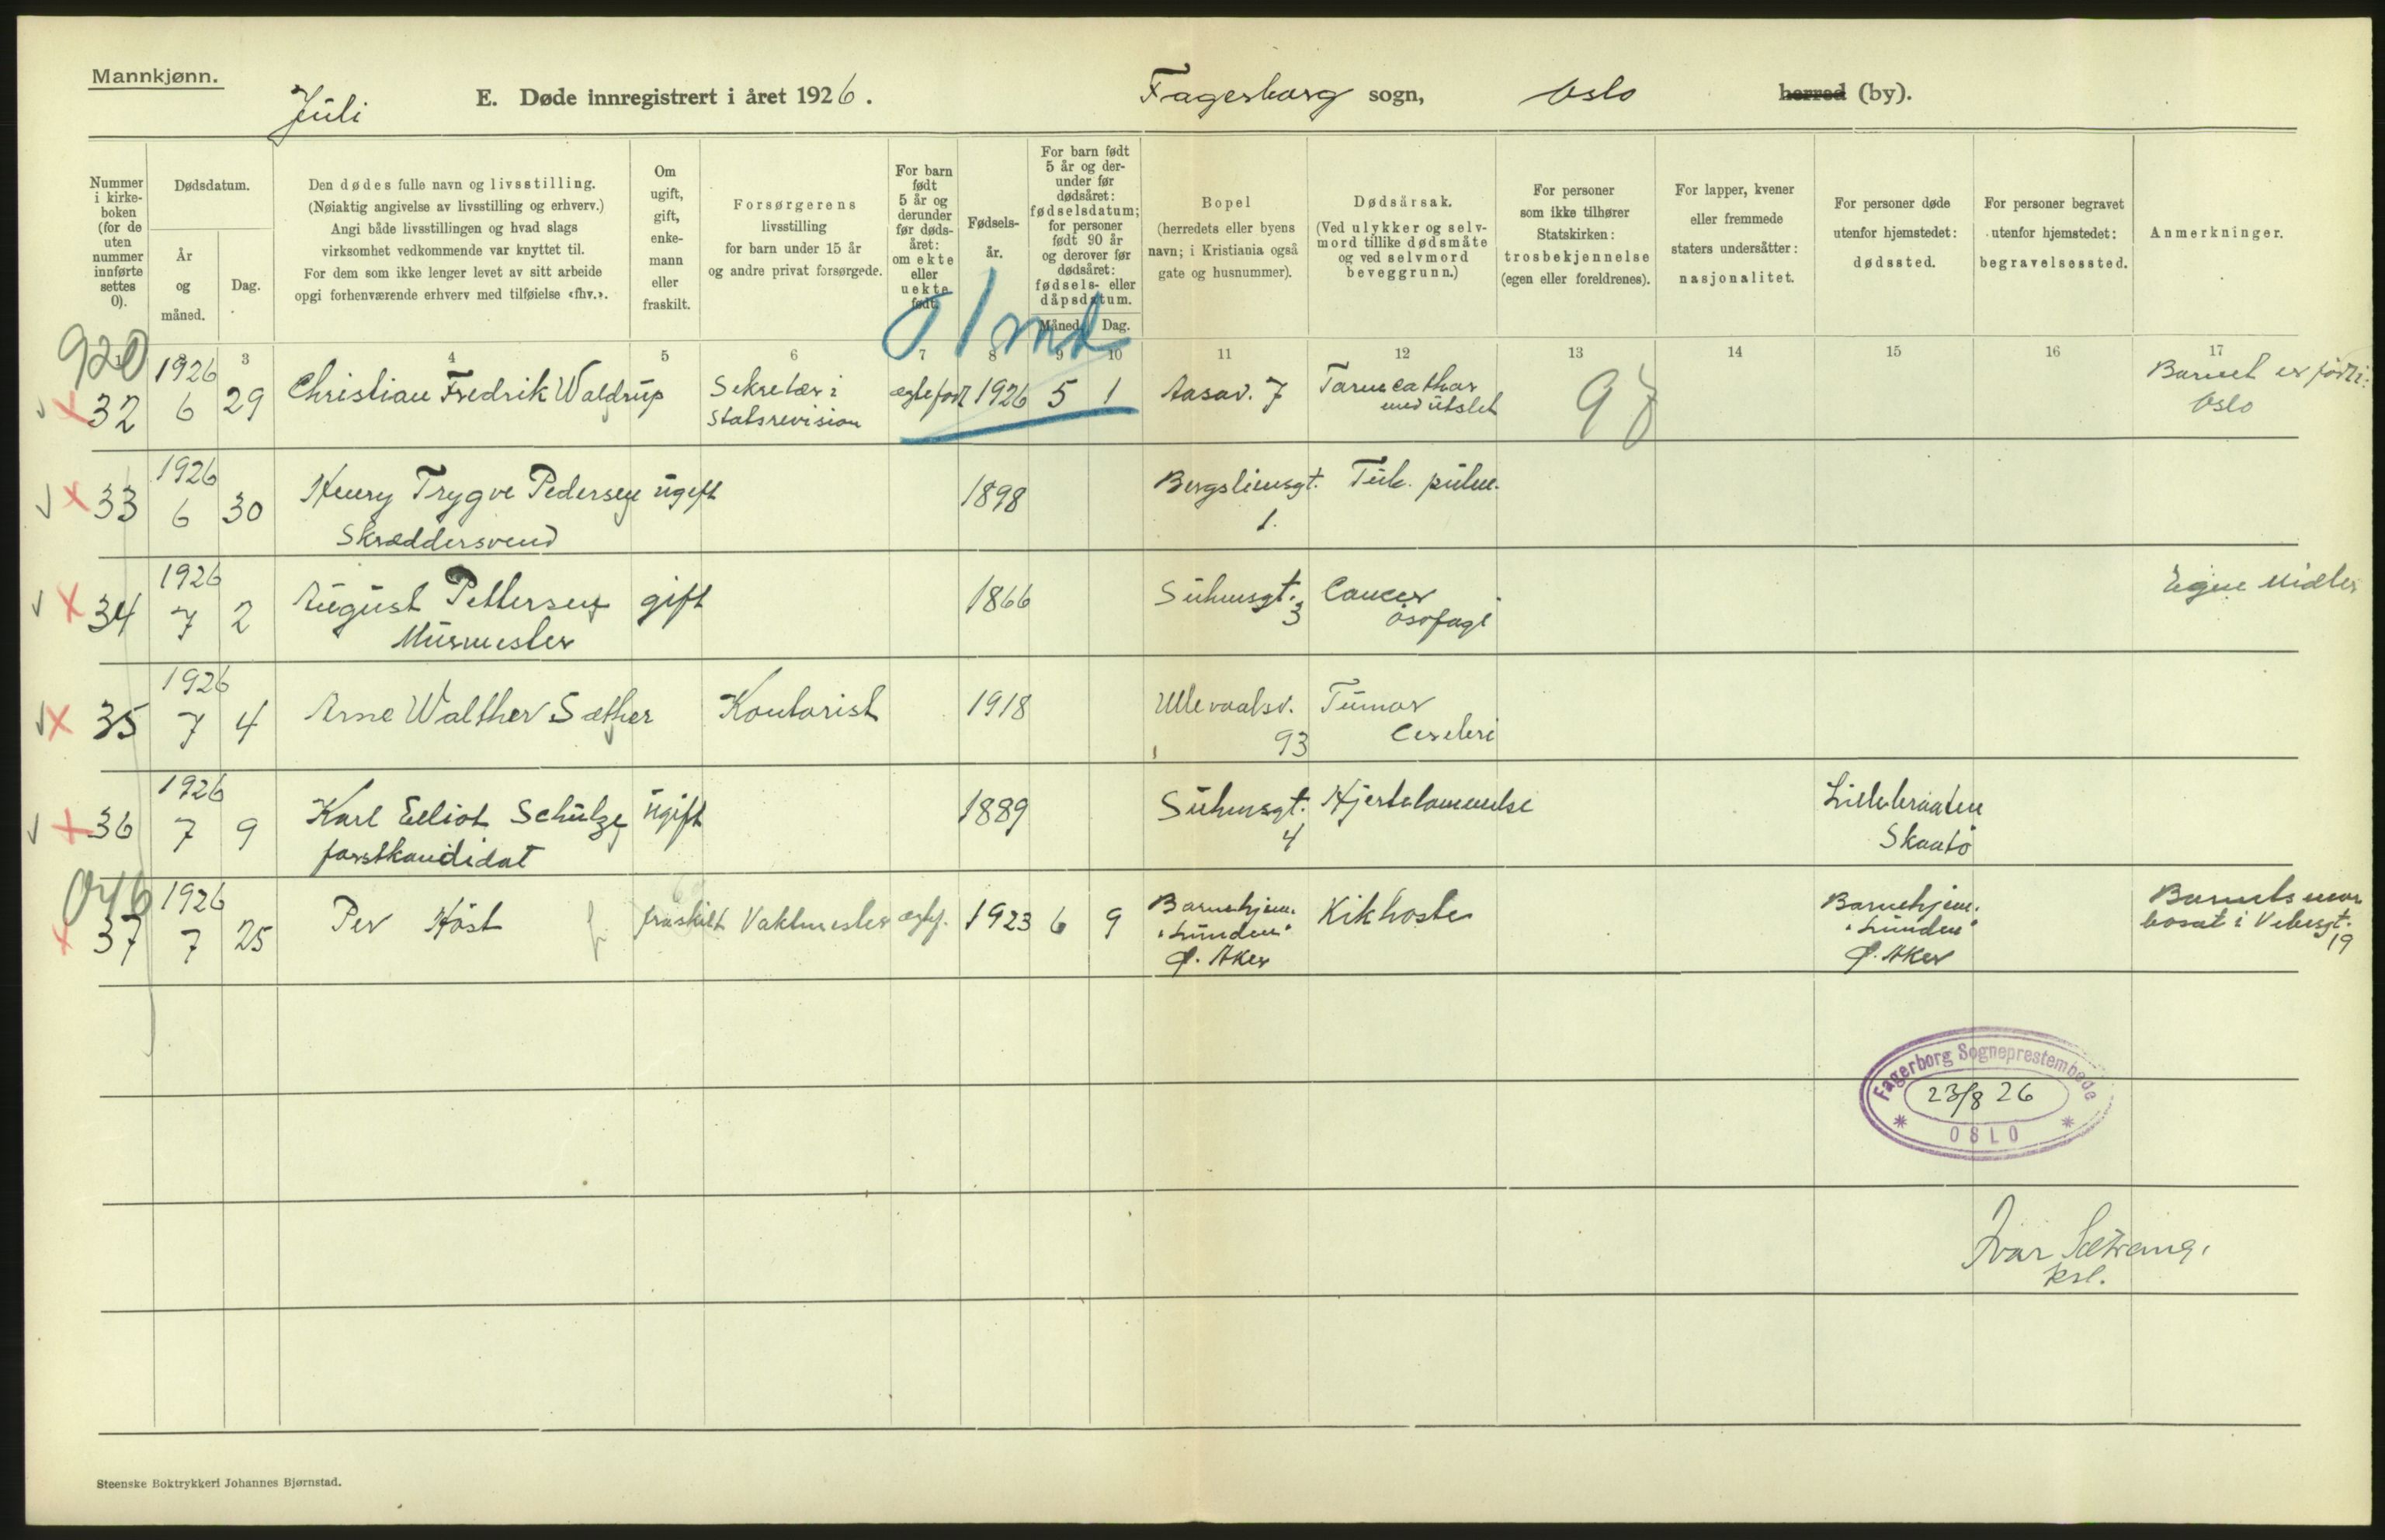 Mannkjønn.
Juli
E. Døde innregistrert i året 1926.
Fagerborg sogn, Oslo herred (by).
Nummer i kirkeboken (for de uten nummer innførte settes 0).
Dødsdatum.
År og måned.
Dag.
Den dødes fulle navn og livsstilling.
(Nøiaktig angivelse av livsstilling og erhverv.)
Angi både livsstillingen og hvad slags
virksomhet vedkommende var knyttet til.
For dem som ikke lenger levet av sitt arbeide
opgi forhenværende erhverv med tilføielse «fhv.».
Om ugift, gift, enkemann eller fraskilt.
Forsørgerens
livsstilling
for barn under 15 år
og andre privat forsørgede.
For barn født 5 år og derunder før dødsåret: om ekte eller uekte født.
Fødselsår.
For barn født 5 år og derunder før dødsåret: fødselsdatum; for personer født 90 år og derover før dødsåret: fødsels- eller dåpsdatum.
Måned. Dag.
Bopel
(herredets eller byens
navn; i Kristiania også
gate og husnummer).
Dødsårsak.
(Ved ulykker og selvmord tillike dødsmåte og ved selvmord beveggrunn.)
For personer
som ikke tilhører
Statskirken:
trosbekjennelse
(egen eller foreldrenes).
For lapper, kvener
eller fremmede
staters undersåtter:
nasjonalitet.
For personer døde
utenfor hjemstedet:
dødssted.
For personer begravet
utenfor hjemstedet:
begravelsessted.
Anmerkninger.
3 4 5 6 7 8 9 10 11 12 13 14 15 16 17
920
01 md
32 1926 6 29 Christian Fredrik Waldrup Sekretær i Statsrevision ægtefødt 1926 5 1 Aasav. 7 Tarmcathar med utslet 97 Barnet er født i Oslo
33 1926 6 30 Henry Trygve Pedersen ugift 1898 Bergsliensgt. 1. Tub. pulm.
Skræddersvend
34 1926 7 2 August Pettersen gift 1866 Suhmsgt. 3 Cancer øsofagi Egne Midler
Murmester
35 1926 7 4 Arne Walther Sæther Kontorist 1918 Ullevaalsv. 93 Tumor Cerebri
36 1926 7 9 Karl Elliot Schulze ugift 1889 Suhmsgt. 4 Hjertelammelse Lillebraaten Skaatø
forstkandidat
046
37 1926 7 25 Per Høst f fraskilt Vaktmester ægtef. 1923 6 9 Barnehjem. "Lunden" Ø. Aker Kikhoste Barnehjem. "Lunden" Ø. Aker Barnets mor bosat i Vibesgt. 19
Fagerborg Sogneprestembede
23/8 26
OSLO
Ivar Sætrang.
ksl.
Steenske Boktrykkeri Johannes Bjørnstad.